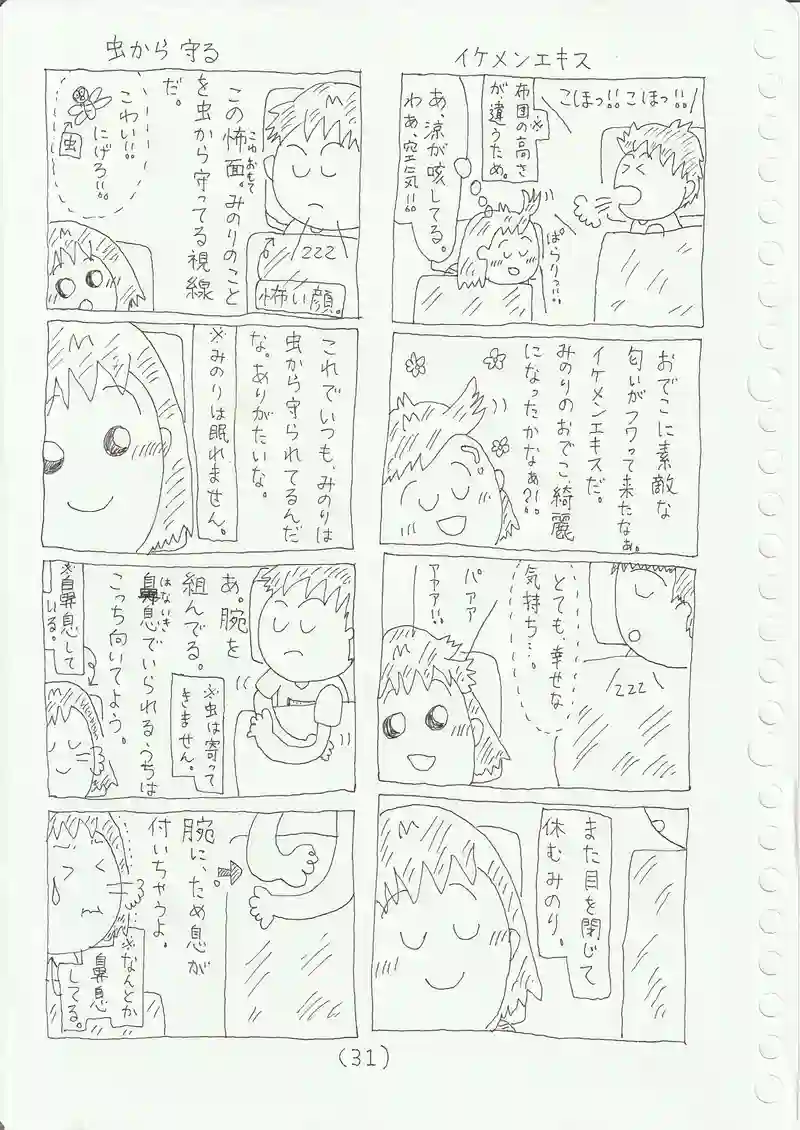 イケメンエキス
こほっ!!こほっ!!
※
布団の高さ
が違うため。
あ、涼が咳してる。
わぁ、空気!!
ぱらりっ!!
おでこに素敵な
匂いがフワって来たなぁ。
イケメンエキスだ。
みのりのおでこ、綺麗
になったかなぁ?!!
とても、幸せな
気持ち…。
zzz
パァァ
アァァ!!
また目を閉じて
休むみのり。
虫から守る
この怖面。みのりのこと
こわおもて
を虫から守ってる視線
だ。
zzz
怖い顔。
こわい!!
にげろ!!
虫
これでいつも、みのりは
虫から守られてるんだ
な。ありがたいな。
※みのりは眠れません。
あ。腕を
組んでる。
鼻息でいられるうちは
はないき
こっち向いてよう。
※虫は寄って
きません。
※鼻息して
いる。
腕に、ため息が
付いちゃうよ。
※なんとか
鼻息
してる。
(31)